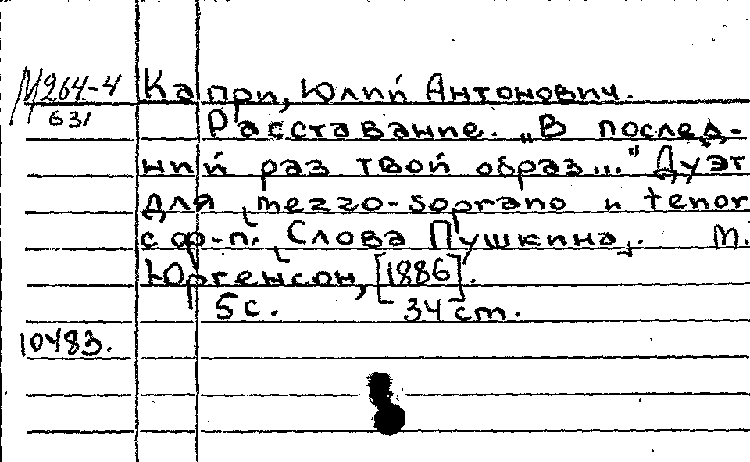 М264-4 Капри, Юлий Антонович.
631 Расставание. „В послед-
ний раз твой образ..." Дуэт
для mezzo-soprano и tenor
с ф-п. Слова Пушкина. М.
Юргенсон, [1886].
5 с. 34 см.
10483.